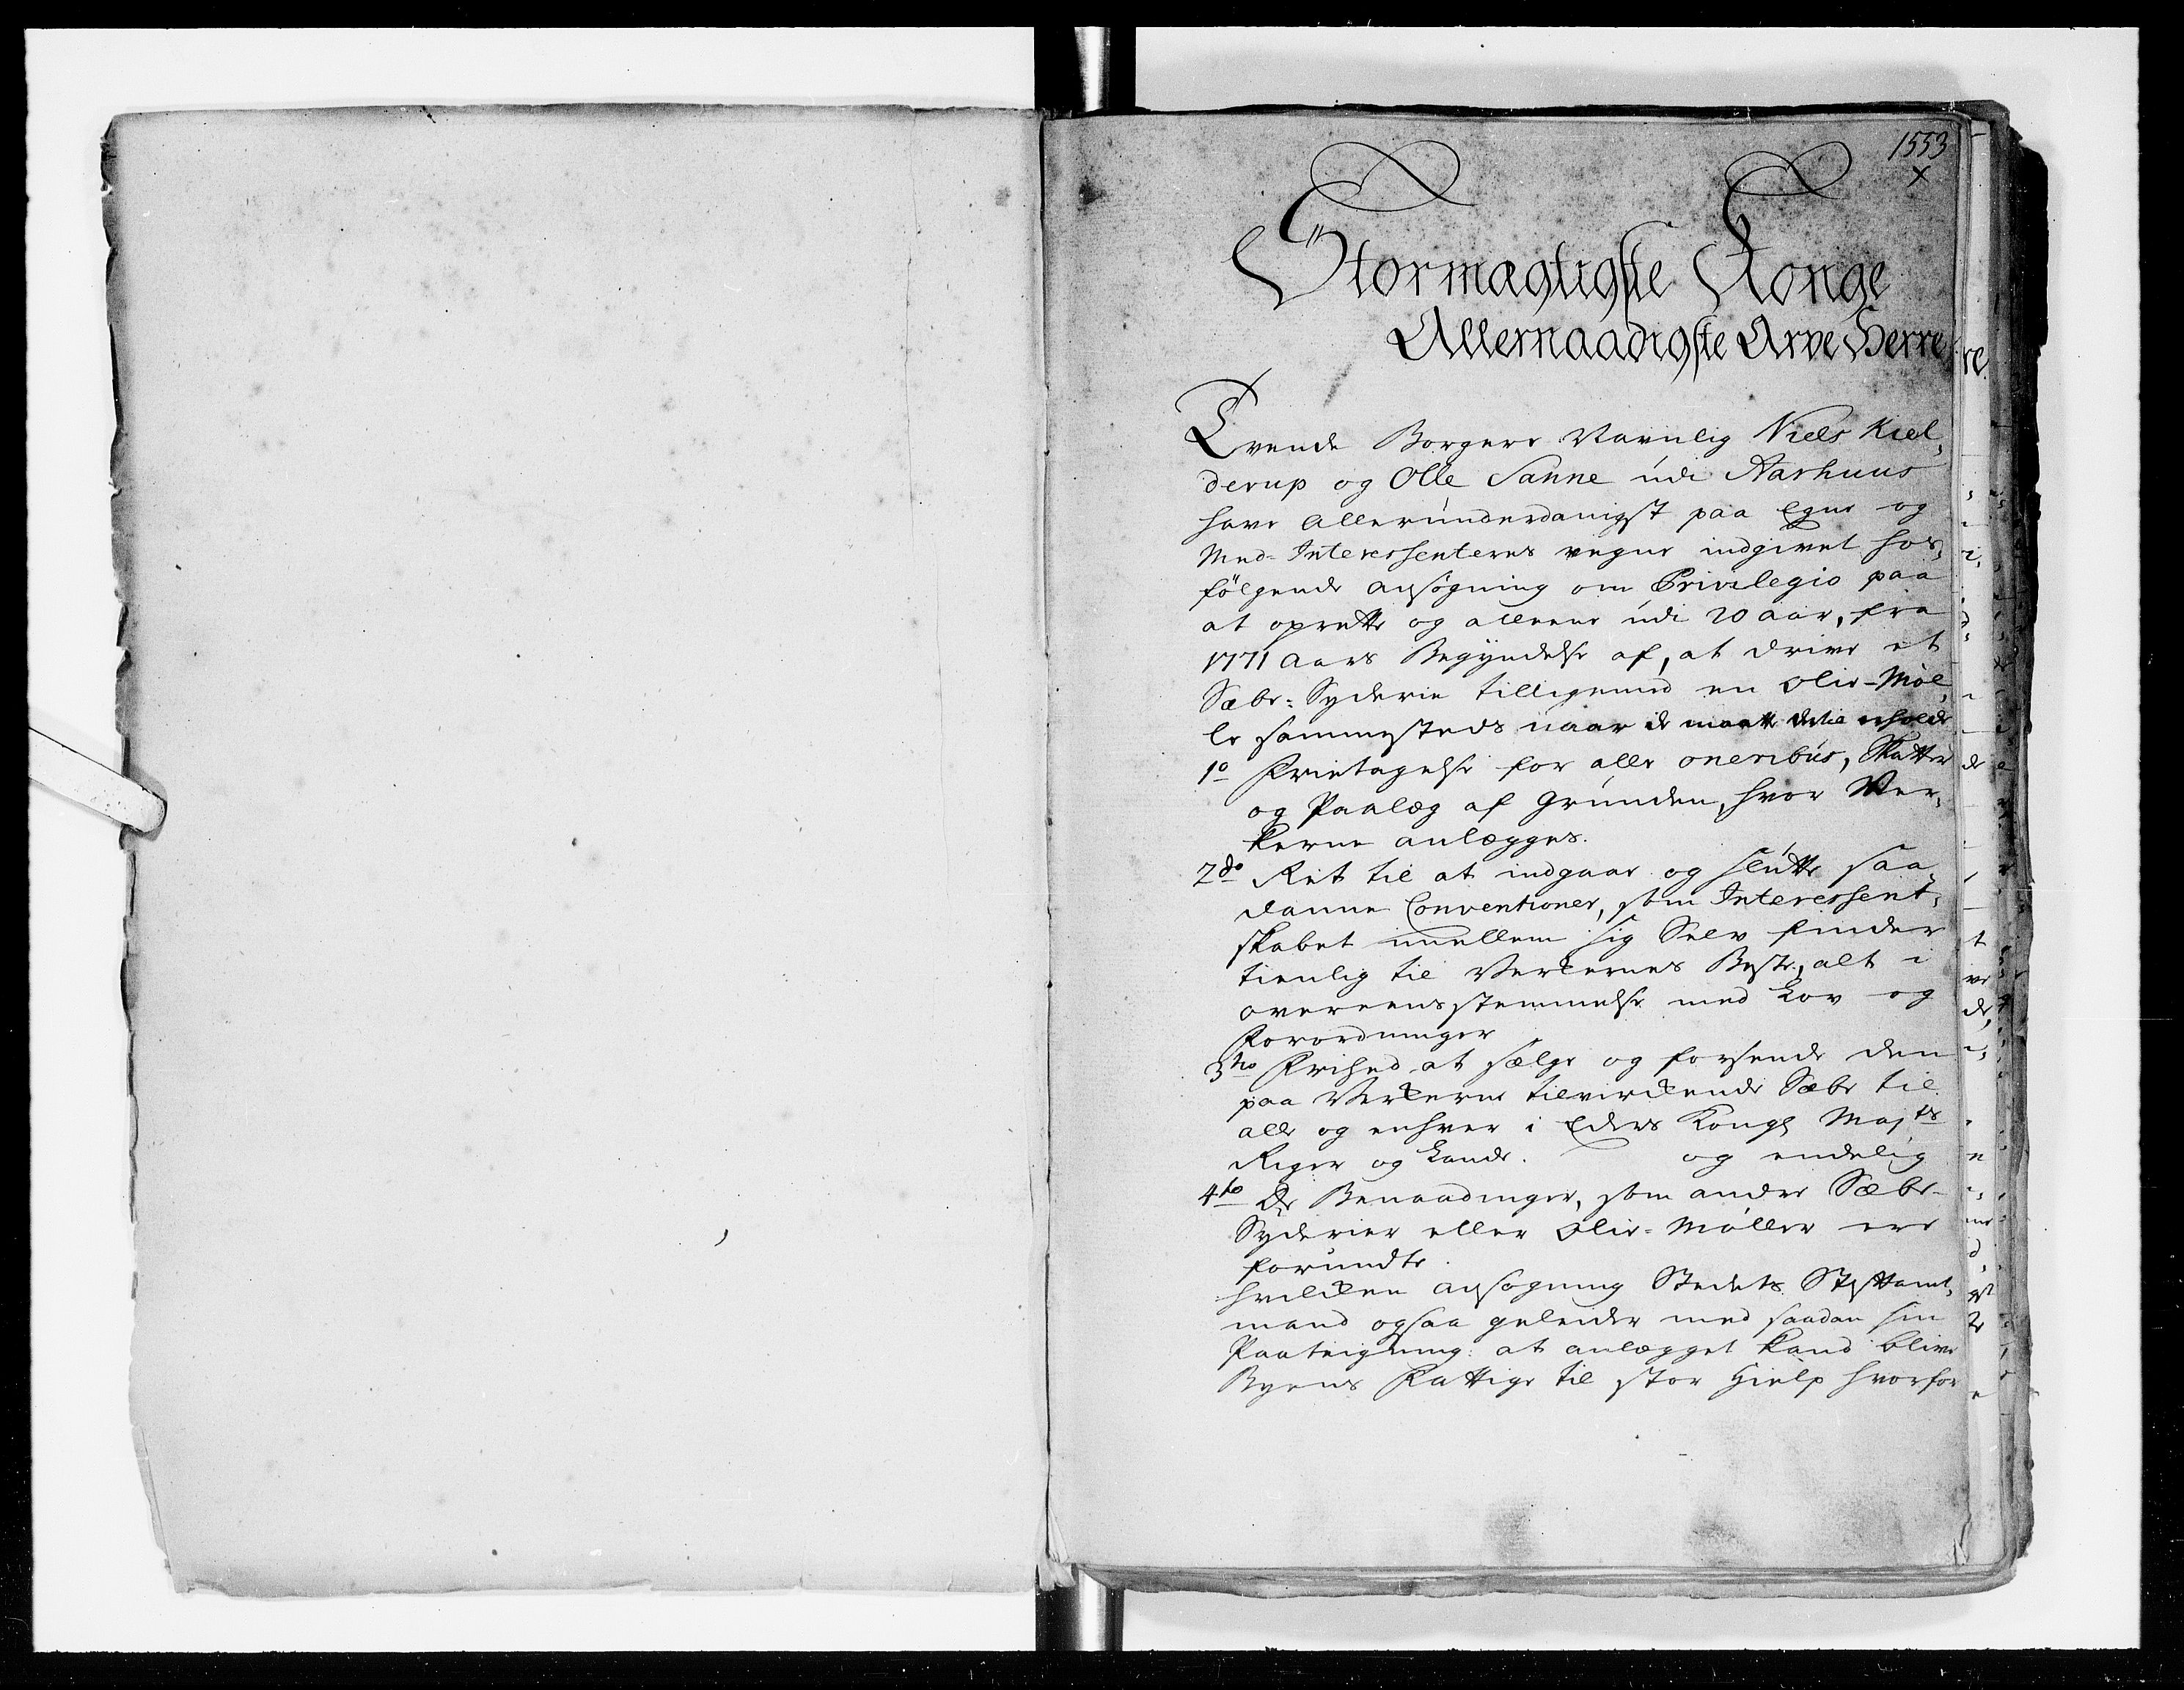 1553
x
Stormægtigste Konge
Allernaadigste Arve Herre
Tvende Borgere Navnlig Niels Kiel-
derup og Olle Sanne udi Aarhuus
have allerunderdanigst paa Egne og
Med-Interessenteres vegne indgivet hos-
følgende ansøgning om Privilegio paa
at oprette og alleene udi 20 aar, fra
1771 Aars Begyndelse af, at drive et
Sæbe-Syderie tilligemed en Olie-Møl-
le sammesteds naar de maatte dertil erholde
1o Frietagelse for alle oneribus, Skatter
og Paalæg af Grunden, hvor Ver-
kerne anlægges.
2do Ret til at indgaae og slutte saa-
danne Conventioner, som Interessent-
skabet imellem sig Selv finder
tienlig til Verkernes Beste, alt i
overeensstemmelse med Lov og
Forordninger
3tio Frihed at sælge og forsende den
paa Verkerne tilvirkende Sæbe til
alle og enhver i Eders Kongl Majts
Riger og Lande. og endelig
4to De Benaadinger, som andre Sæbe-
Syderier eller Olie-Møller ere
forundte.
hvilken ansøgning Stedets Stiftamt-
mand ogsaa geleider med saadan sin
Paategning: at anlægget kand blive
Byens Fattige til stor Hielp hvorfor